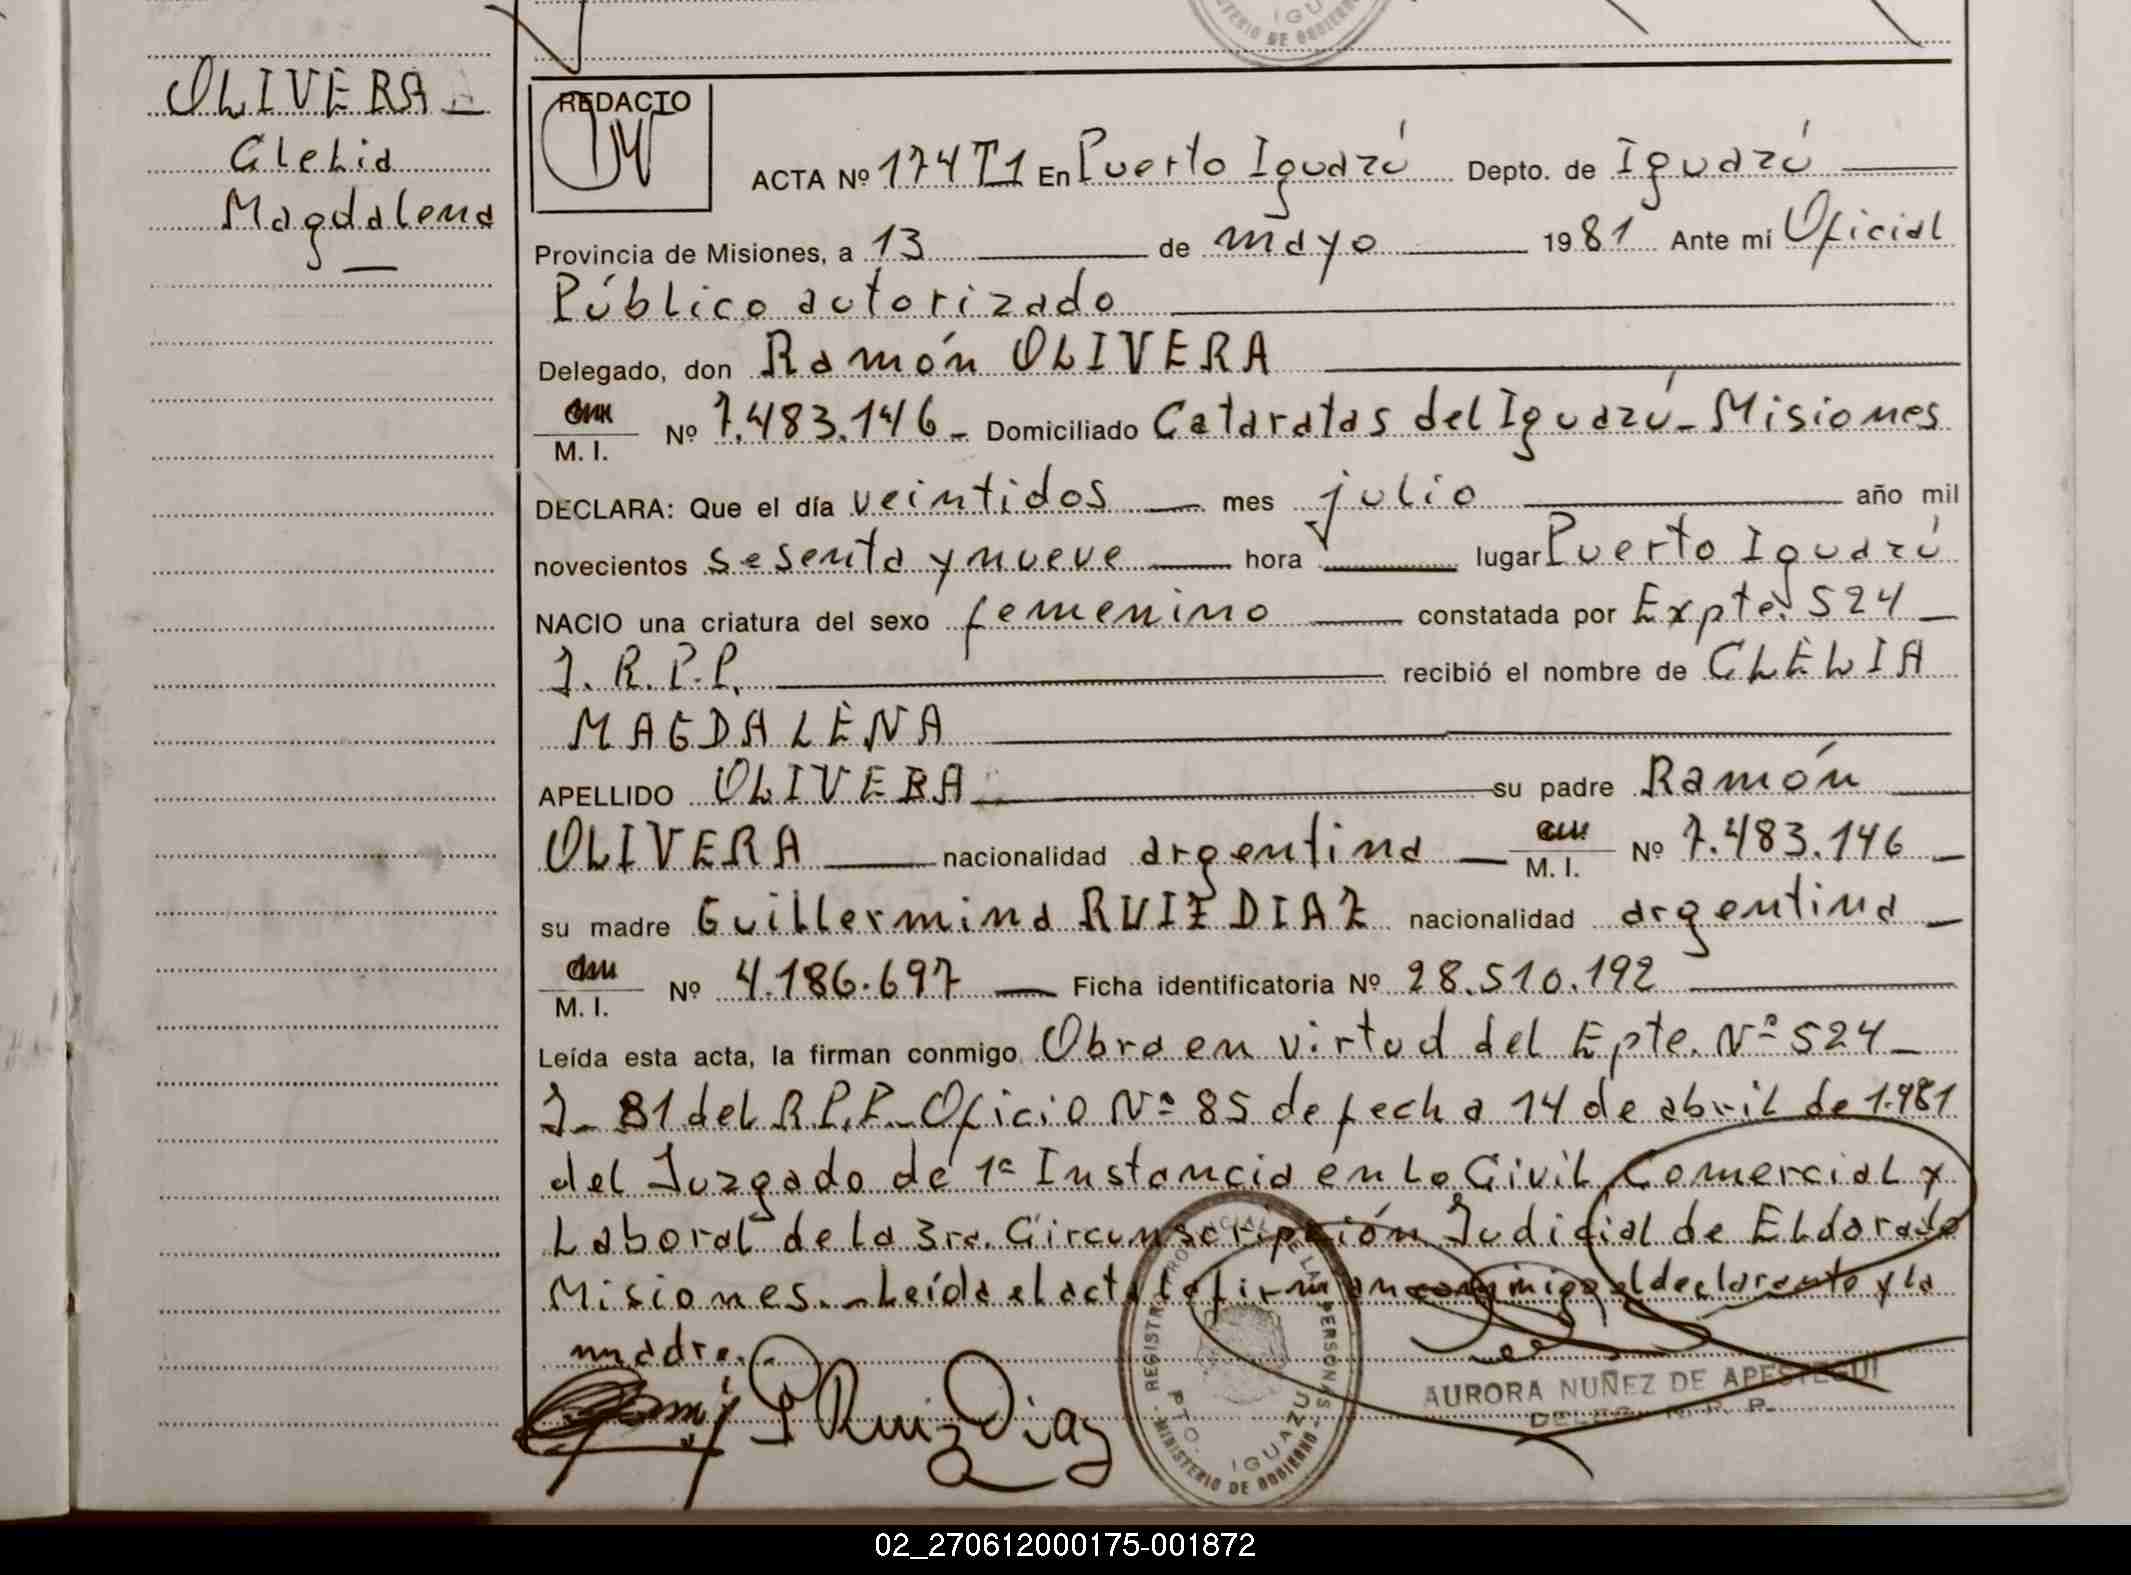 OLIVERA
Clelia
Magdalena
REDACTO
ACTA Nº 174T1 En Puerto Iguazú Depto. de Iguazú
Provincia de Misiones, a 13 de mayo 1981 Ante mí Oficial
Público autorizado
Delegado, don Ramón OLIVERA
M. I. Nº 7.483.146 - Domiciliado Cataratas del Iguazú - Misiones
DECLARA: Que el día veintidos mes julio año mil
novecientos sesenta y nueve hora lugar Puerto Iguazú
NACIO una criatura del sexo femenino constatada por Expte. 524
J. R.P.P. recibió el nombre de CLELIA
MAGDALENA
APELLIDO OLIVERA su padre Ramón
OLIVERA nacionalidad argentina M. I. Nº 7.483.146
su madre Guillermina RUIZ DIAZ nacionalidad argentina
M. I. Nº 4.186.697 Ficha identificatoria Nº 28.510.192
Leída esta acta, la firman conmigo Obra en virtud del Epte. Nº 524
J- 81 del R.P.P. Oficio Nº 85 de fecha 14 de abril de 1.981
del Juzgado de 1ª Instancia en Lo Civil Comercial y
Laboral de la 3ra. Circunscripción Judicial de Eldorado
Misiones. - Leída el acta la firman conmigo el declarante y la
madre.
Ruiz Diaz
REGISTRO PROVINCIAL DE LAS PERSONAS
PTO. IGUAZU
MINISTERIO DE GOBIERNO
AURORA NUÑEZ DE APESTEGUI
DELEG. R. P. P.
02_270612000175-001872